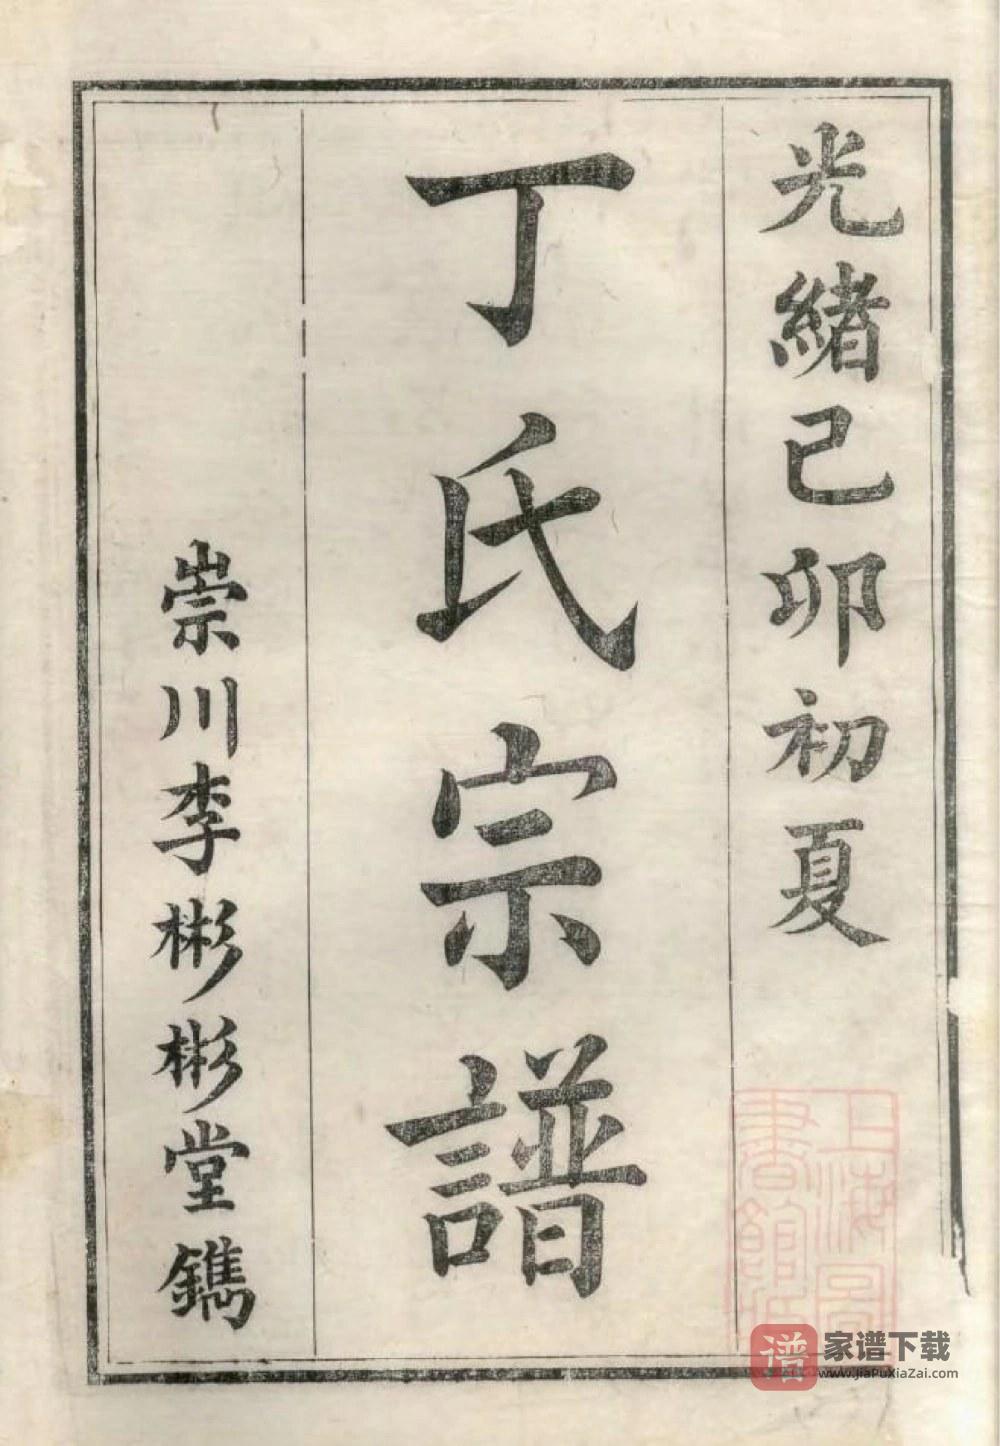 光緒己卯初夏
丁氏宗譜
崇川李彬彬堂鐫
上海圖
書館
谱
家谱下载
www.JiaPuXiaZai.com